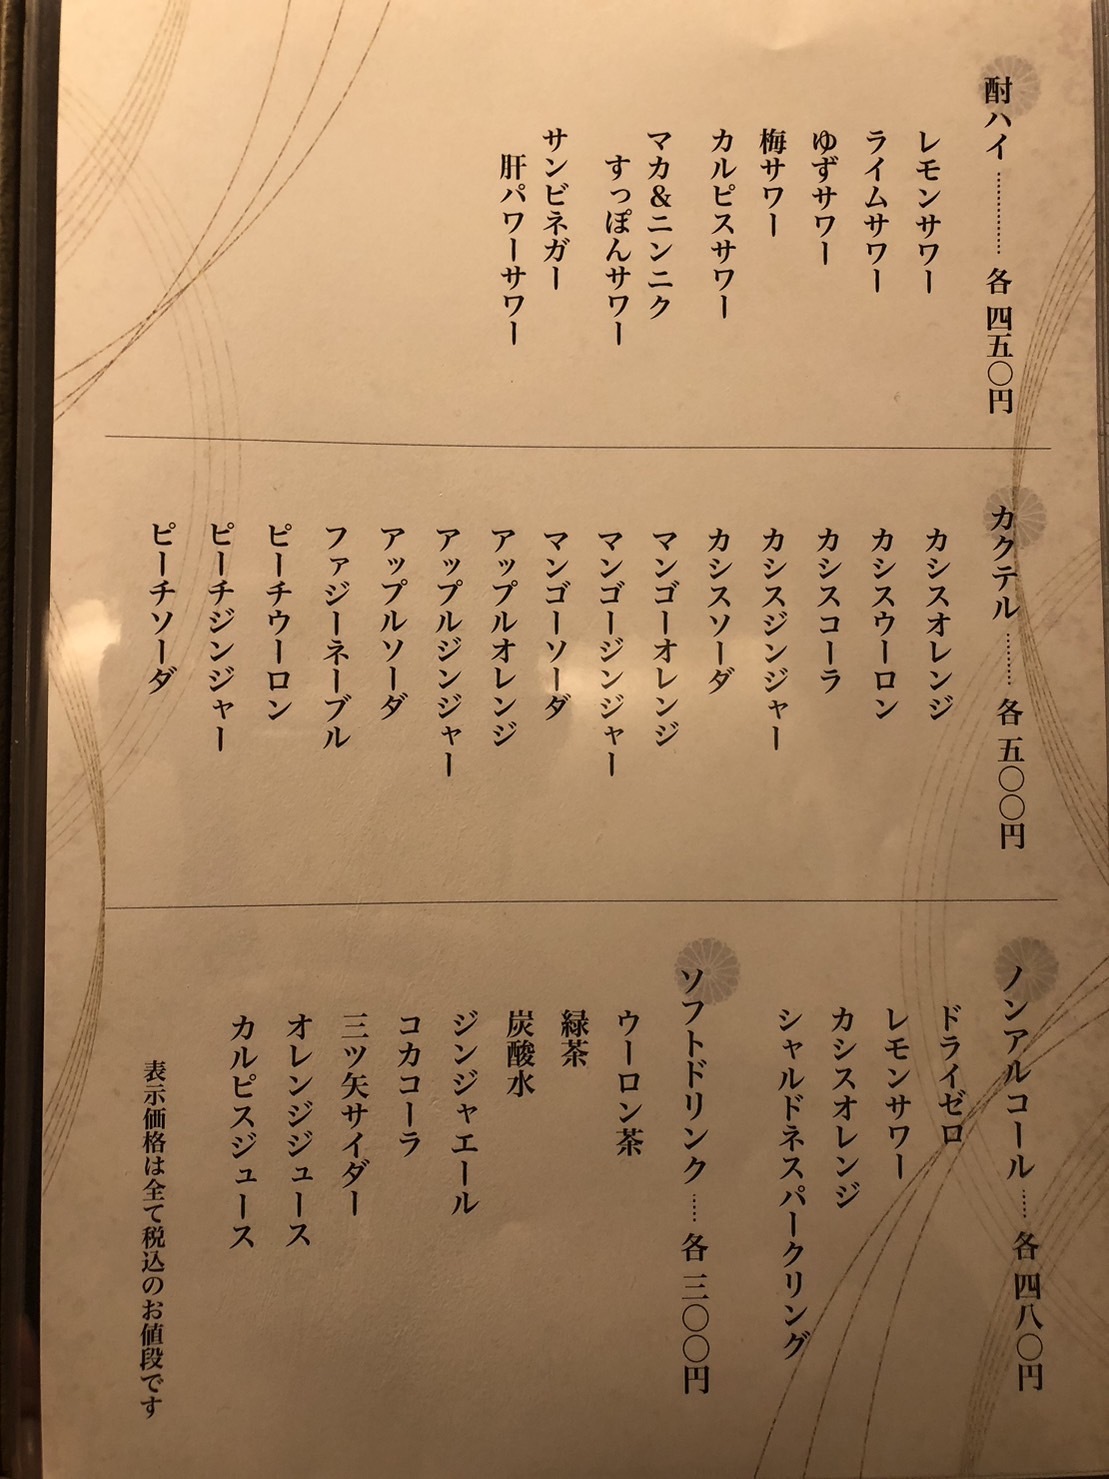 酎ハイ ………… 各 四五〇円
レモンサワー
ライムサワー
ゆずサワー
梅サワー
カルピスサワー
マカ&ニンニク
すっぽんサワー
サンビネガー
肝パワーサワー
カクテル ……… 各 五〇〇円
カシスオレンジ
カシスウーロン
カシスコーラ
カシスジンジャー
カシスソーダ
マンゴーオレンジ
マンゴージンジャー
マンゴーソーダ
アップルオレンジ
アップルジンジャー
アップルソーダ
ファジーネーブル
ピーチウーロン
ピーチジンジャー
ピーチソーダ
ノンアルコール …… 各 四八〇円
ドライゼロ
レモンサワー
カシスオレンジ
シャルドネスパークリング
ソフトドリンク …… 各 三〇〇円
ウーロン茶
緑茶
炭酸水
ジンジャエール
コカコーラ
三ツ矢サイダー
オレンジジュース
カルピスジュース
表示価格は全て税込のお値段です